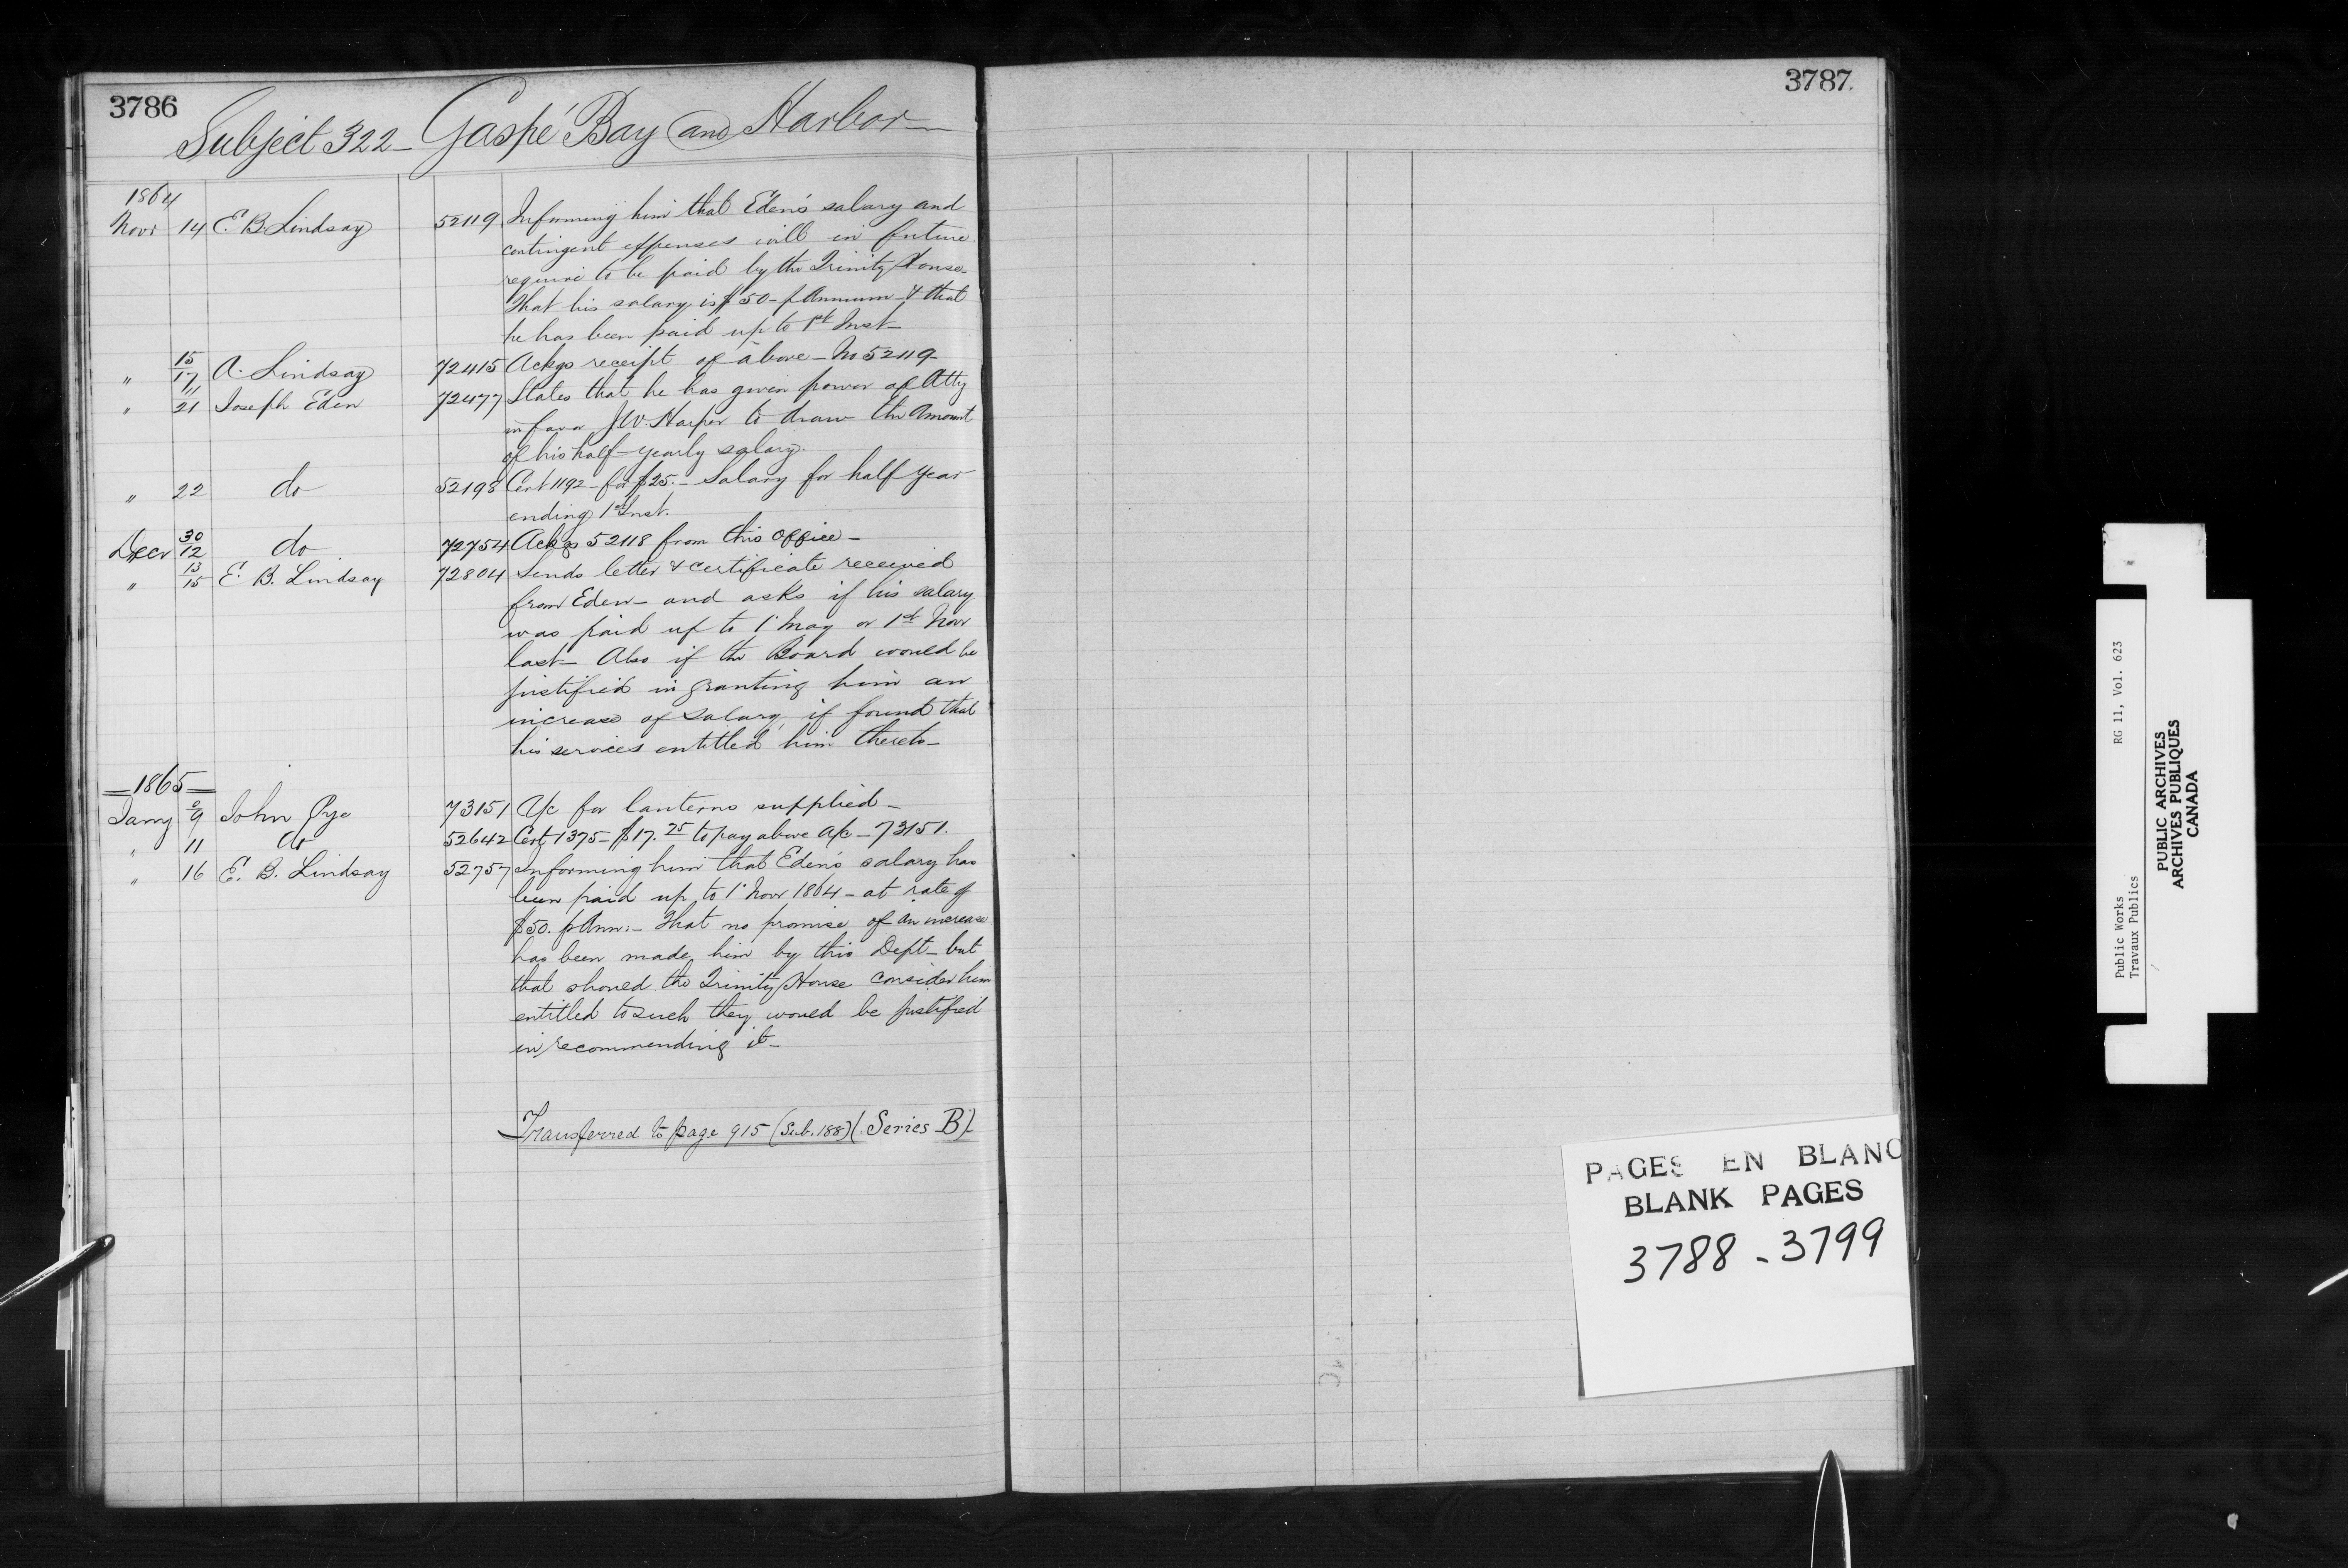 3786
Subject 322 - Gaspé Bay and Harbor
1864
Novr 14 E. B. Lindsay 52119 Informing him that Eden's salary and
contingent expenses will in future
require to be paid by the Trinity House.
That his salary is $50 - p Annum - & that
he has been paid up to 1st Inst -
" 15/17 A. Lindsay 72415 Ackgs receipt of above - No 52119
" 11/21 Joseph Eden 72477 States that he has given power of Atty
in favor J.W. Harper to draw the Amount
of his half-yearly salary.
" 22 do 52198 Cert 1192 - for $25. - Salary for half year
ending 1st Inst.
Decr 30/12 do 72754 Ackgs 52118 from this office -
" 13/15 E. B. Lindsay 72804 Sends letter & certificate received
from Eden - and asks if his salary
was paid up to 1 May or 1st Novr
last - Also if the Board would be
justified in granting him an
increase of salary, if found that
his services entitled him thereto -
- 1865 -
Jany 9 John Pye 73151 A/c for lanterns supplied -
" 11 do 52642 Cert 1375 - $17.25 to pay above a/c - 73151.
" 16 E. B. Lindsay 52757 Informing him that Eden's salary has
been paid up to 1 Novr 1864 - at rate of
$50. p Ann: - That no promise of an increase
has been made him by this Dept - but
that should the Trinity House consider him
entitled to such they would be justified
in recommending it -
Transferred to page 915 (Sub. 188) (Series B)
3787.
PAGES EN BLANC
BLANK PAGES
3788 - 3799
Public Works RG 11, Vol. 623
Travaux Publics
PUBLIC ARCHIVES
ARCHIVES PUBLIQUES
CANADA